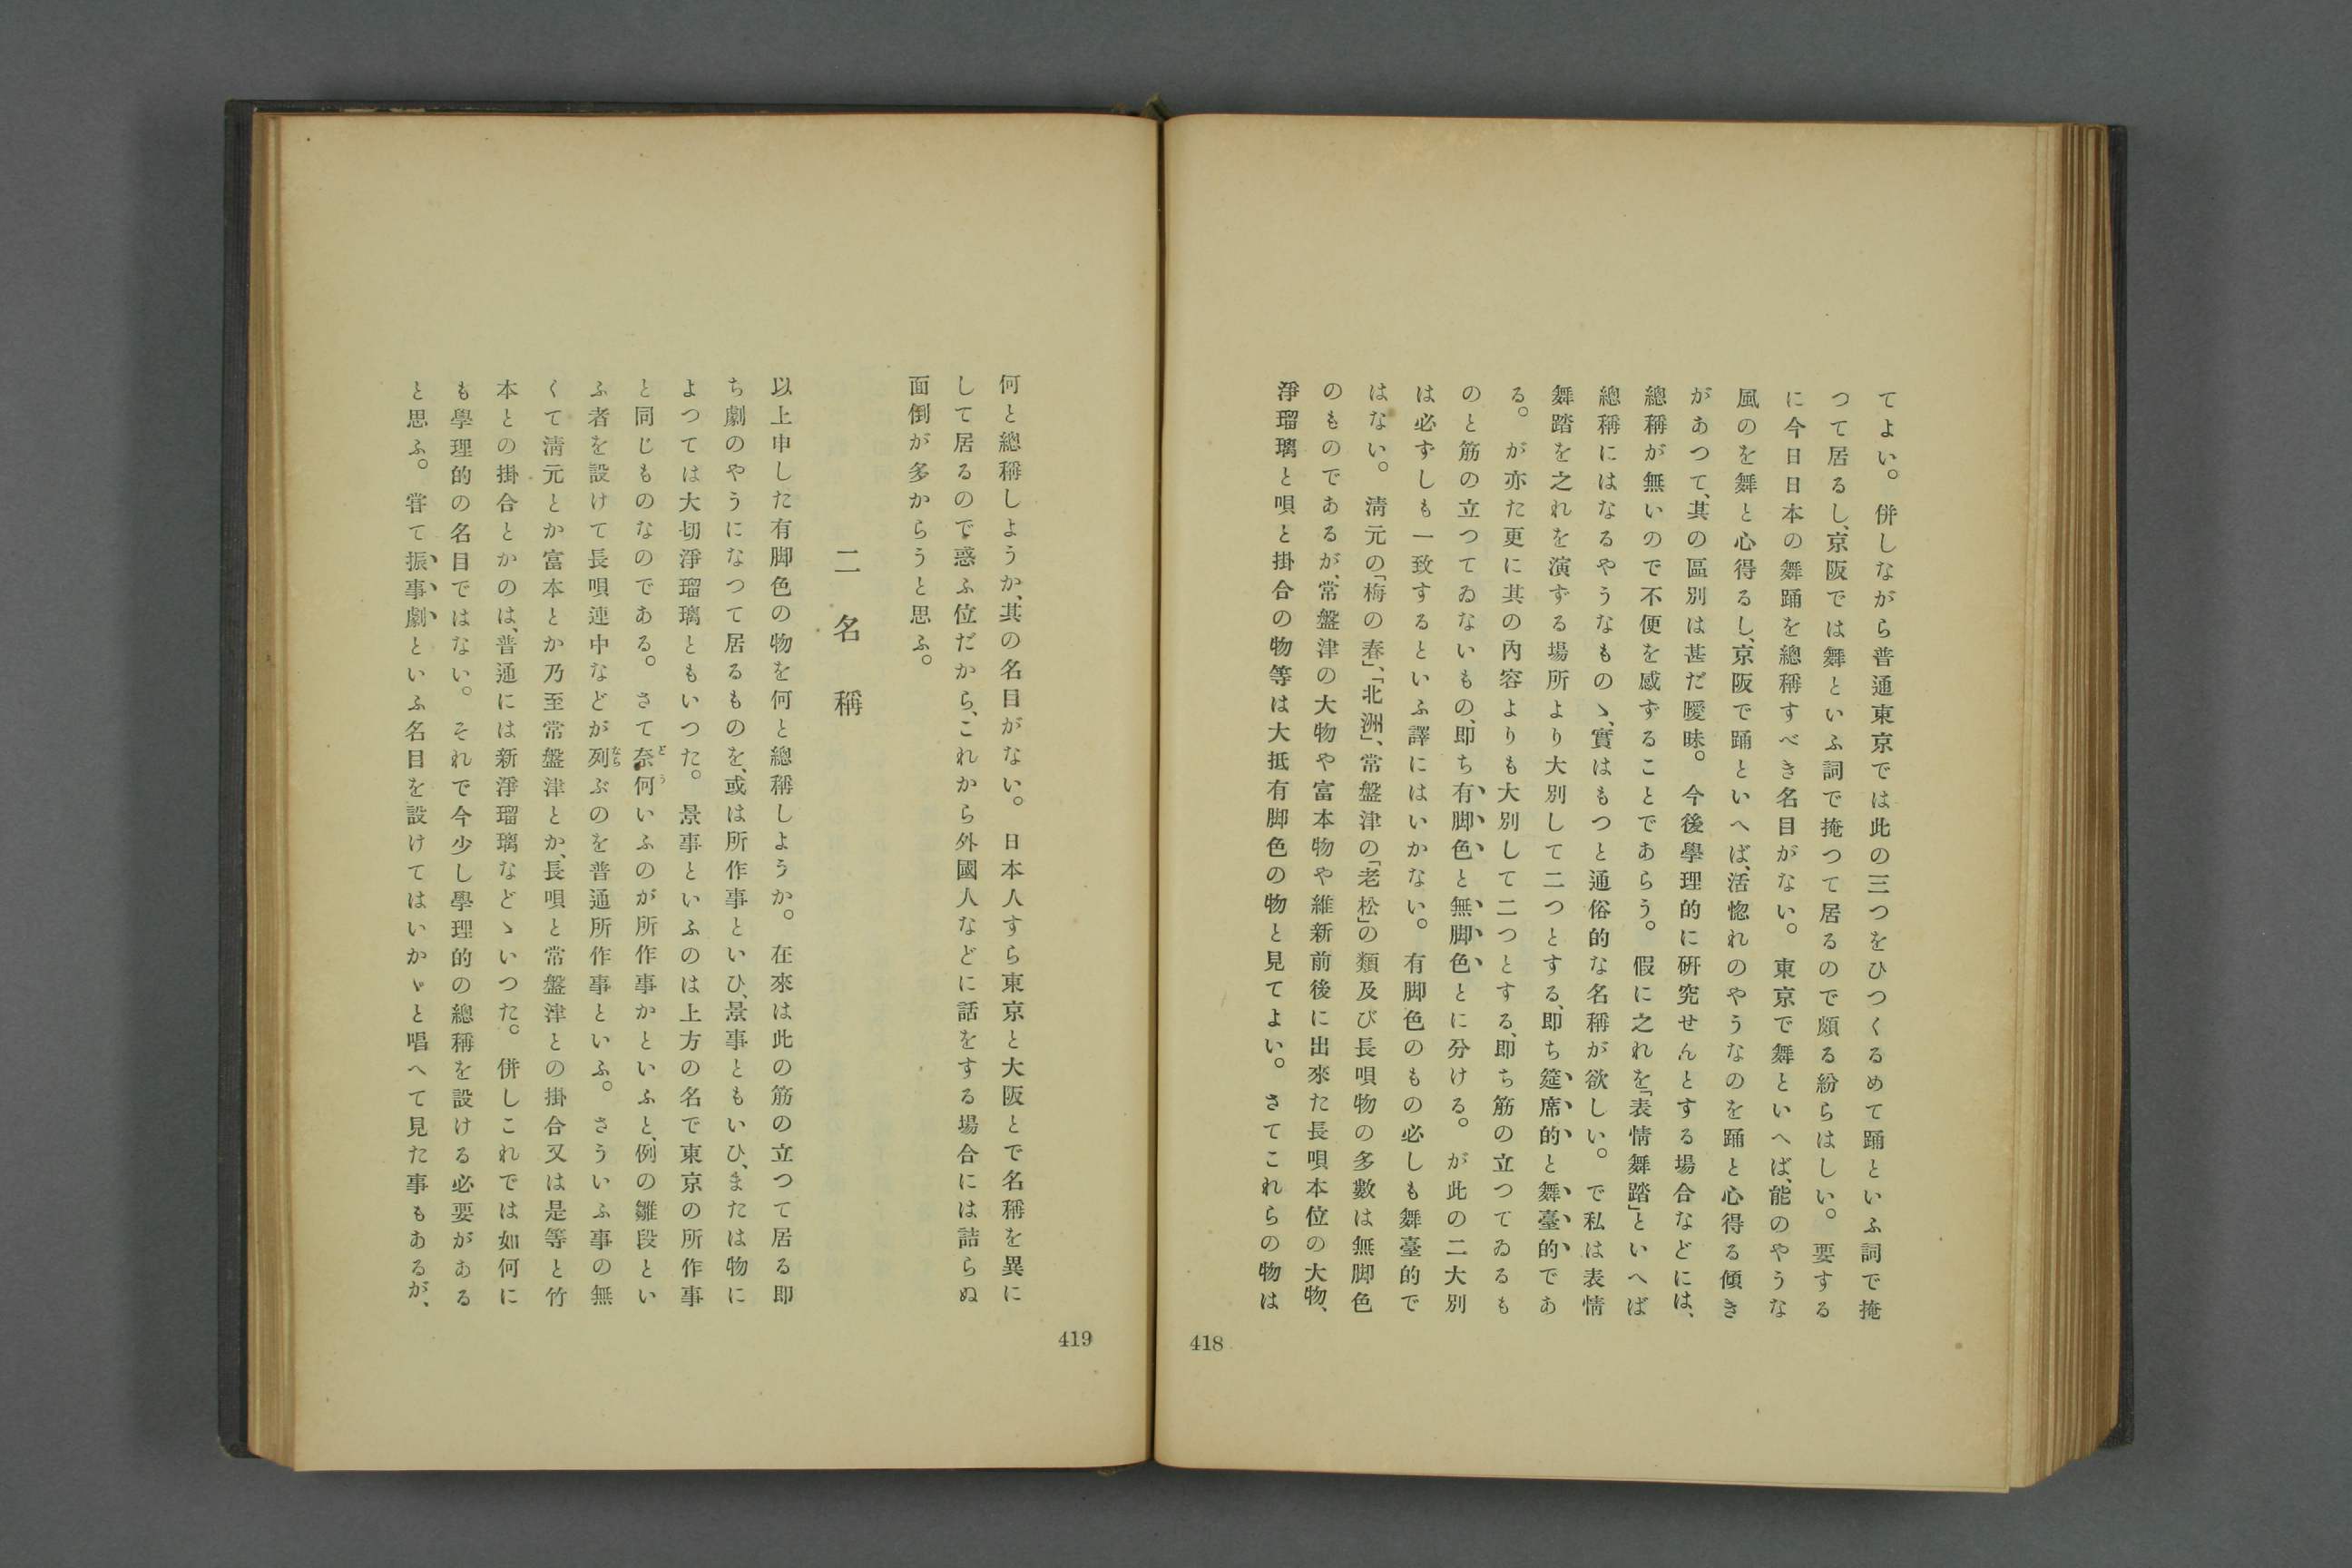 てよい。併しながら普通東京では此の三つをひつくるめて踊といふ詞で掩
つて居るし、京阪では舞といふ詞で掩つて居るので頗る紛らはしい。要する
に今日日本の舞踊を總稱すべき名目がない。東京で舞といへば、能のやうな
風のを舞と心得るし、京阪で踊といへば、活惚れのやうなのを踊と心得る傾き
があつて、其の區別は甚だ曖昧。今後學理的に研究せんとする場合などには、
總稱が無いので不便を感ずることであらう。假に之れを「表情舞踏」といへば
總稱にはなるやうなものゝ、實はもつと通俗的な名稱が欲しい。で私は表情
舞踏を之れを演ずる場所より大別して二つとする、即ち筵席的と舞臺的であ
る。が亦た更に其の内容よりも大別して二つとする、即ち筋の立つてゐるも
のと筋の立つてゐないもの、即ち有脚色と無脚色とに分ける。が此の二大別
は必ずしも一致するといふ譯にはいかない。有脚色のもの必しも舞臺的で
はない。淸元の「梅の春」、「北洲」、常盤津の「老松」の類及び長唄物の多數は無脚色
のものであるが、常盤津の大物や富本物や維新前後に出來た長唄本位の大物、
淨瑠璃と唄と掛合の物等は大抵有脚色の物と見てよい。さてこれらの物は
418
何と總稱しようか、其の名目がない。日本人すら東京と大阪とで名稱を異に
して居るので惑ふ位だから、これから外國人などに話をする場合には詰らぬ
面倒が多からうと思ふ。
二 名稱
以上申した有脚色の物を何と總稱しようか。在來は此の筋の立つて居る即
ち劇のやうになつて居るものを、或は所作事といひ、景事ともいひ、または物に
よつては大切淨瑠璃ともいつた。景事といふのは上方の名で東京の所作事
と同じものなのである。さて奈何いふのが所作事かといふと、例の雛段とい
ふ者を設けて長唄連中などが列ぶのを普通所作事といふ。さういふ事の無
くて淸元とか富本とか乃至常盤津とか、長唄と常盤津との掛合又は是等と竹
本との掛合とかのは、普通には新淨瑠璃などゝいつた。併しこれでは如何に
も學理的の名目ではない。それで今少し學理的の總稱を設ける必要がある
と思ふ。甞て振事劇といふ名目を設けてはいかゞと唱へて見た事もあるが、
419